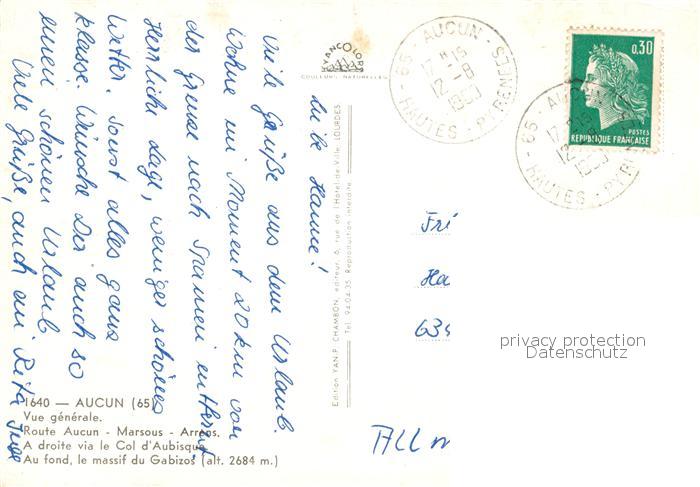 Liebe Hanne!
Viele Grüße aus dem Urlaub.
Wohne im Moment 20 km von
der Grenze nach Spanien entfernt.
Herrliche Lage, weniger schönes
Wetter, sonst alles ganz
klasse. Wünsche Dir auch so
einen schönen Urlaub.
Viele Grüße, auch an Rita
YANCOLOR
COULEURS NATURELLES
Edition YAN P. CHAMBON, editeur, 6, rue de l'Hotel-de-Ville, LOURDES
Tel. 94-04-35 Reproduction interdite
65 - AUCUN
17 H 15
12 - 8
HAUTES - PYRENEES
0,30
POSTES
REPUBLIQUE FRANÇAISE
65 - AUCUN
17 H 15
12 - 8
HAUTES - PYRENEES
Ha
privacy protection
Datenschutz
1640 — AUCUN (65)
Vue générale.
Route Aucun - Marsous - Arrens.
A droite via le Col d'Aubisque
Au fond, le massif du Gabizos (alt. 2684 m.)